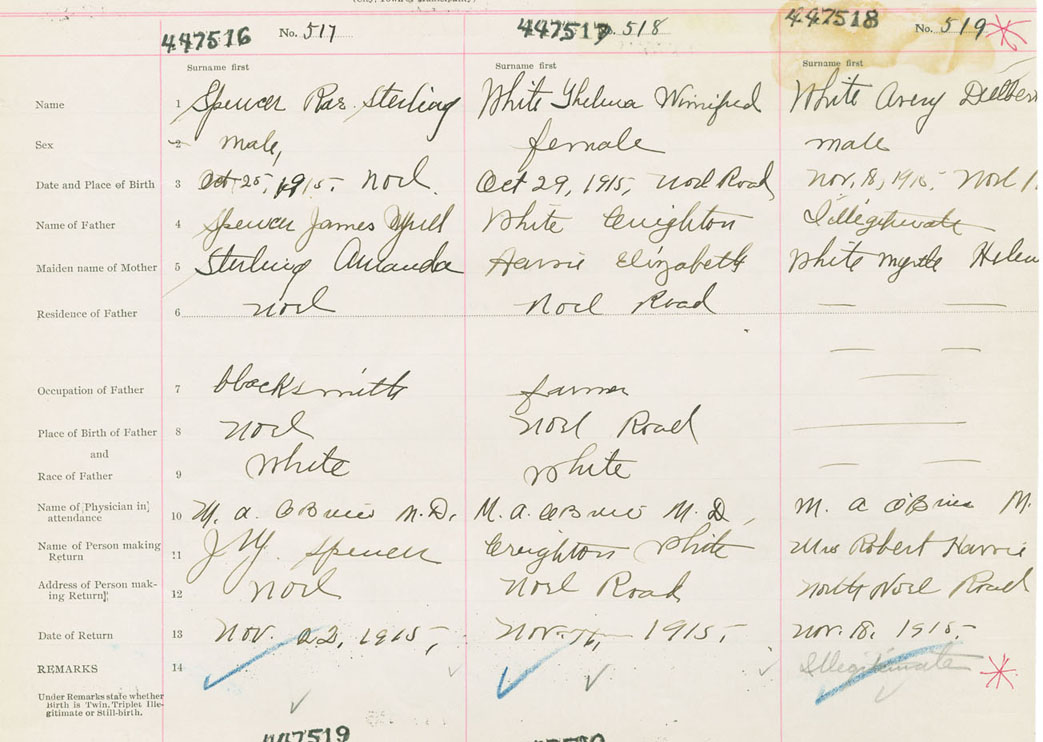 447516 No. 517 447517 518 447518 No. 519
Surname first Surname first Surname first
Name 1 Spencer Rae Sterling White Thelma Winnifred White Avery
Sex 2 male, female male
Date and Place of Birth 3 Oct 25, 1915, Noel. Oct 29, 1915, Noel Road Nov. 8, 1915. Noel
Name of Father 4 Spencer James White Creighton Illegitimate
Maiden name of Mother 5 Sterling Amanda Harvie Elizabeth White Myrtle Helen
Residence of Father 6 Noel Noel Road — —
— —
Occupation of Father 7 blacksmith farmer —
Place of Birth of Father 8 Noel Noel Road —
and
Race of Father 9 White White — —
Name of Physician in
attendance 10 M. A. O'Brien M.D. M. A. O'Brien M.D, M. A O'Brien M.
Name of Person making
Return 11 Spencer Creighton White Mrs Robert Harvie
Address of Person mak-
ing Return 12 Noel Noel Road North Noel Road
Date of Return 13 Nov. 22, 1915, Nov. 1915, Nov. 18, 1915,
REMARKS 14 Illegitimate
Under Remarks state whether
Birth is Twin, Triplet Ille-
gitimate or Still-birth.
447519